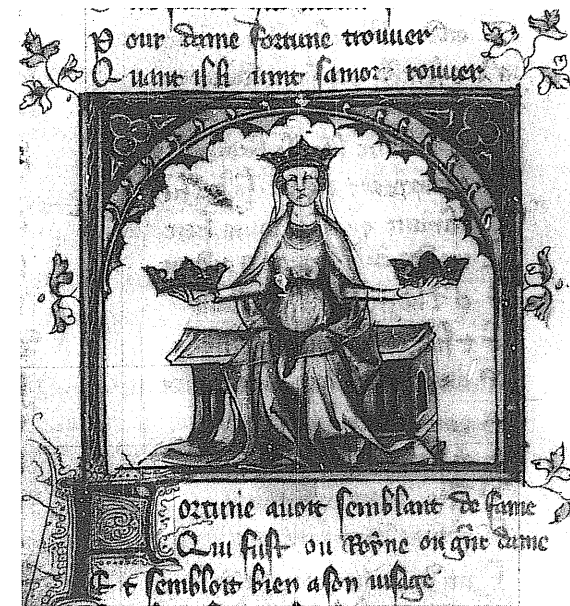 Pour dame fortune trouver
Quant il li vint samor rouver
Fortune avoit semblant de fame
Qui fust ou Royne ou gñt dame
Et sembloit bien a son visage